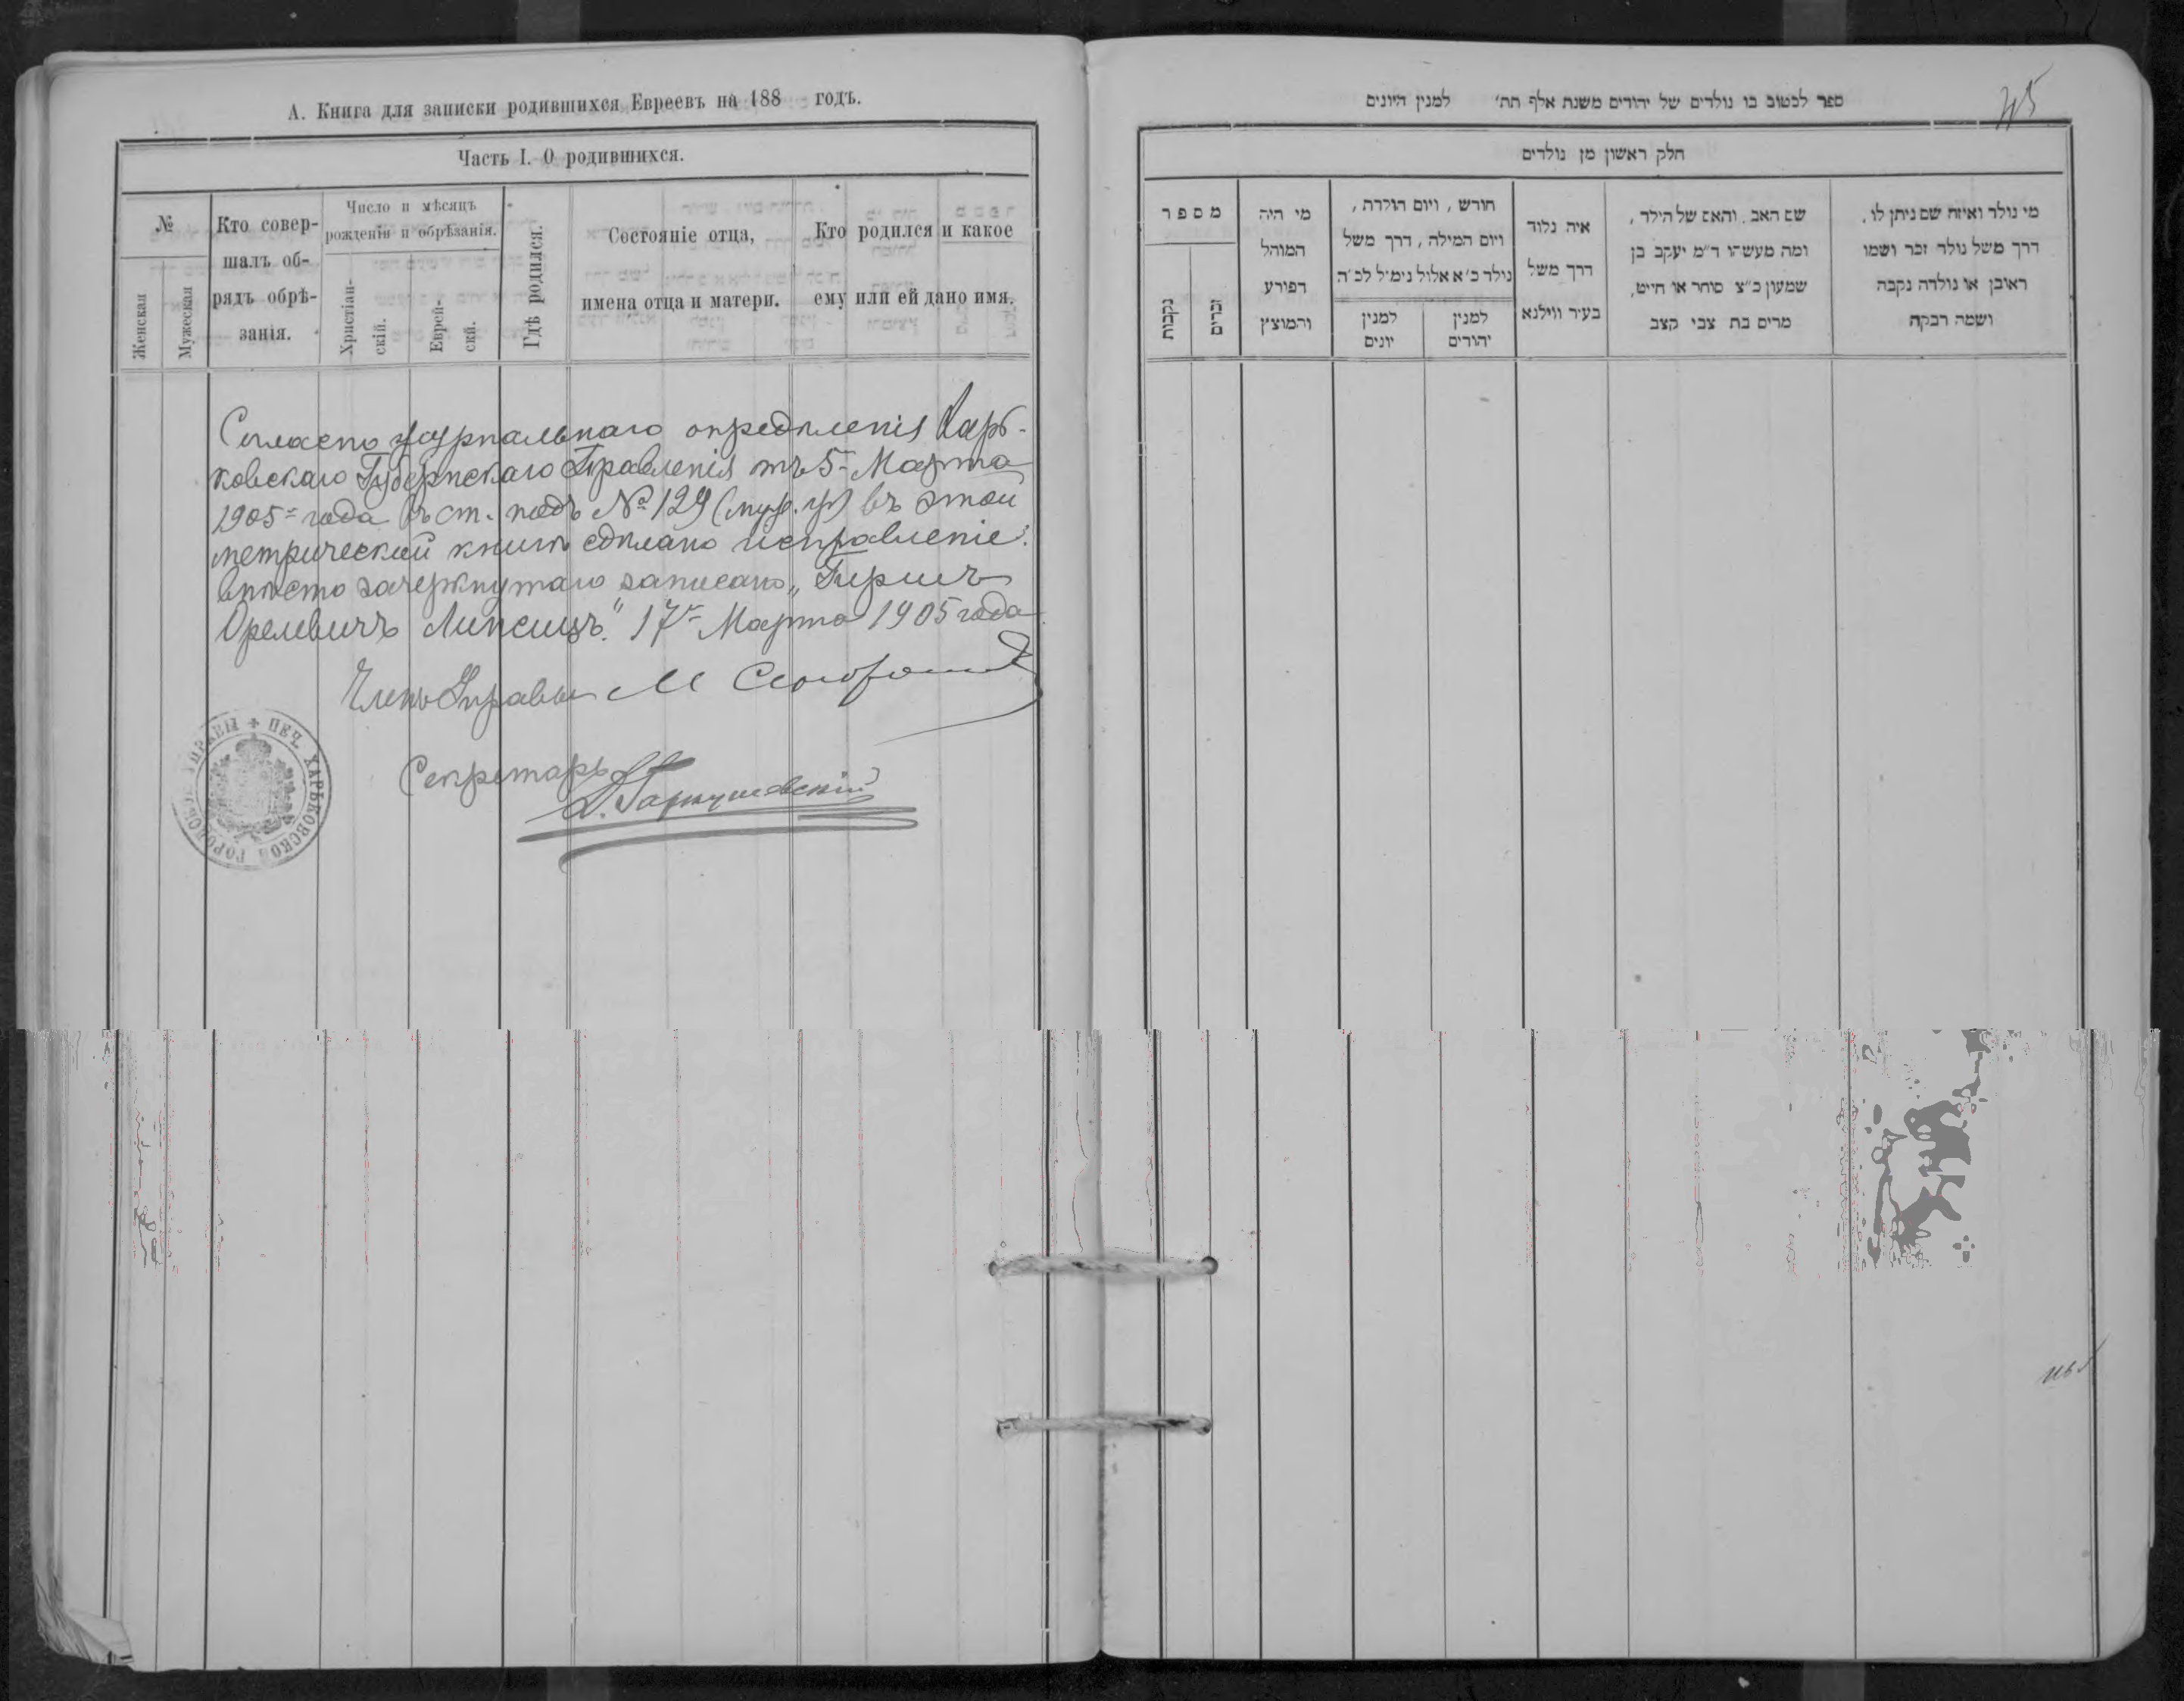 А. Книга для записки родившихся Евреевъ на 188 годъ.
Часть I. О родившихся.
№
Женская
Мужеская
Кто совер-
шалъ об-
рядъ обрѣ-
занія.
Число и мѣсяцъ
рожденія и обрѣзанія.
Христіан-
скій.
Еврей-
скій.
Гдѣ родился.
Состояніе отца,
имена отца и матери.
Кто родился и какое
ему или ей дано имя.
Согласно журнальнаго опредѣленія Харь-
ковскаго Губернскаго Правленія отъ 5 Марта
1905 года въ ст. подъ № 129 (муж. гр) въ этой
метрической книгѣ сдѣлано исправленіе:
вмѣсто зачеркнутаго записано „Гиршъ
Орелевичъ Липсицъ." 17 Марта 1905 года
Членъ Управы М
Секретарь
ПЕЧ. ХАРЬКОВСКОЙ ГОРОДСКОЙ УПРАВЫ
ספר לכטוב בו נולדים של יהודים משנת אלף תת׳ למנין היונים
45
חלק ראשון מן נולדים
מספר
נקבות
זכרים
מי היה
המוהל
הפורע
והמוצץ
חורש , ויום הולדה ,
ויום המילה , דרך משל
נולד כ׳א אלול נימ׳ל לכ׳ה
למנין
יונים
למנין
יהודים
איה נלוד
דרך משל
בעיר ווילנא
שם האב . והאם של הילד ,
ומה מעשהו ד״מ יעקב בן
שמעון כ״צ סוחר או חייט,
מרים בת צבי קצב
מי נולד ואיזה שם ניתן לו ,
דרך משל נולד זכר ושמו
ראובן או נולדה נקבה
ושמה רבקה